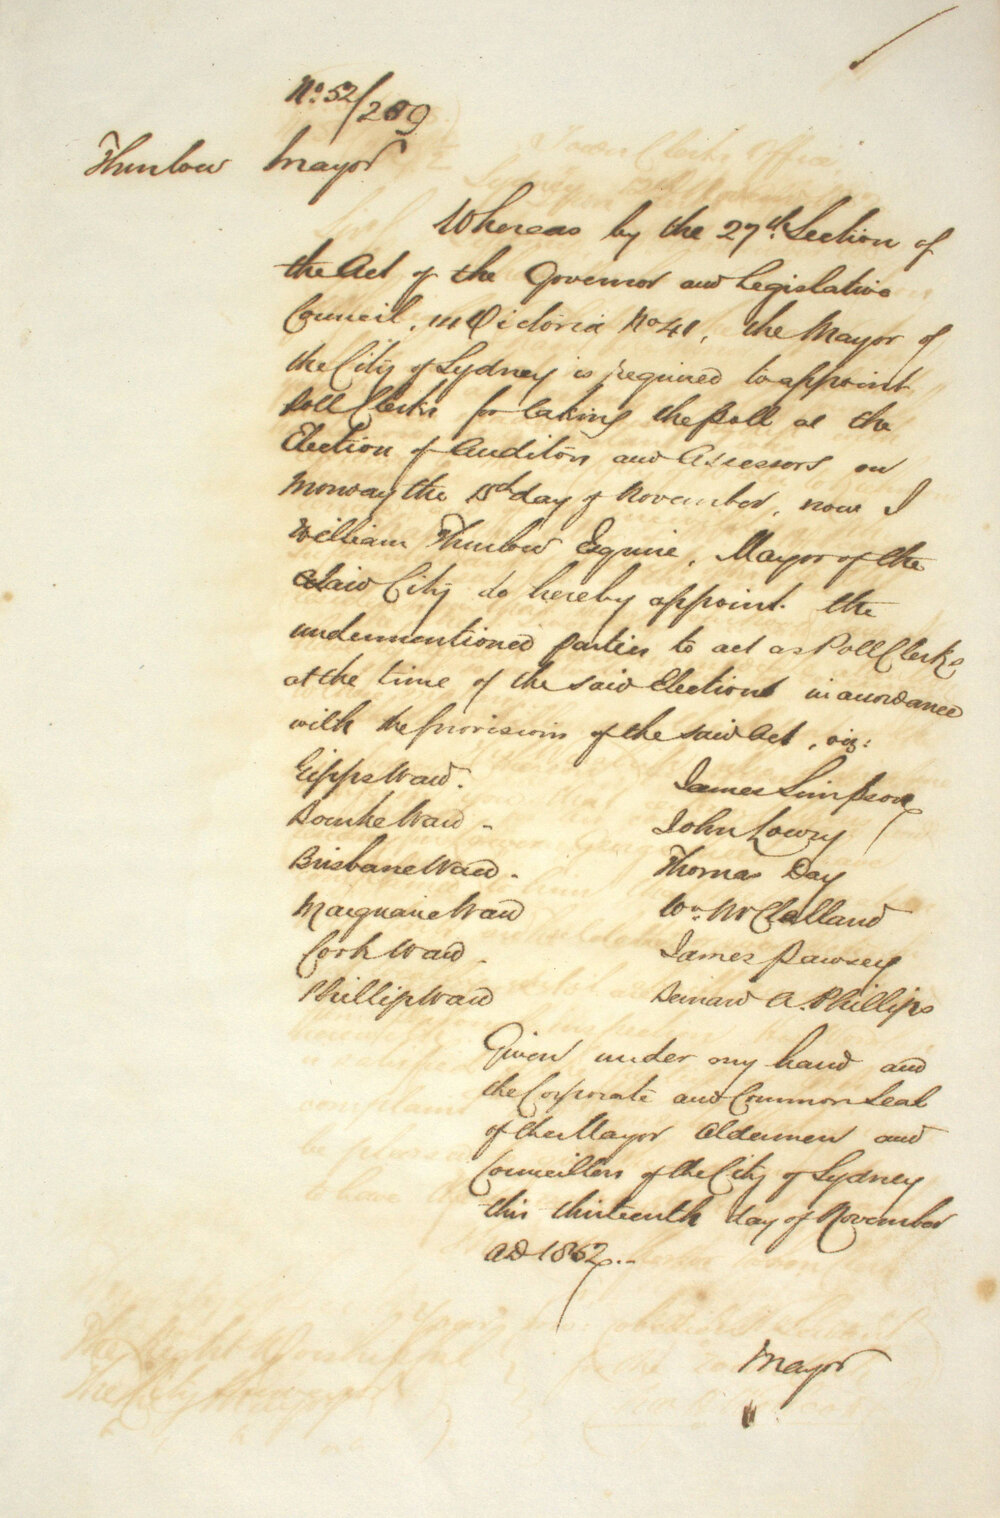 No. 52/209
Thurlow Mayor
Whereas by the 27th. Section of
the Act of the Governor and Legislative
Council, in Victoria No 41, the Mayor of
the City of Sydney is required to appoint
Poll Clerks for taking the Poll at the
Election of Auditors and Assessors on
Monday the 15th day of November, now I
William Thurlow Esquire, Mayor of the
Said City do hereby appoint the
undermentioned parties to act as Poll Clerks
at the time of the said Elections in accordance
with the provisions of the said Act, viz:
Gipps Ward. James Simpson
Bourke Ward - John Lowry
Brisbane Ward. Thomas Day
Macquarie Ward Wm. McClelland
Cook Ward. James Pawsey
Phillip Ward Bernard A. Phillips
Given under my hand and
the Corporate and Common Seal
of the Mayor Aldermen and
Councillors of the City of Sydney
this thirteenth day of November
AD 1852..
Mayor